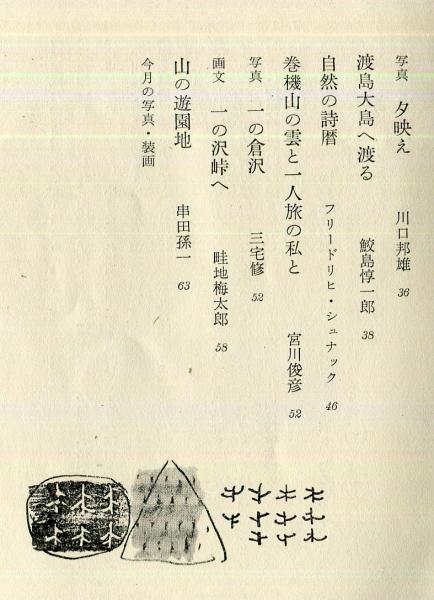 写真 夕映え 川口邦雄 36
渡島大島へ渡る 鮫島惇一郎 38
自然の詩暦 フリードリヒ・シュナック 46
巻機山の雲と一人旅の私と 宮川俊彦 52
写真 一の倉沢 三宅修 52
画文 一の沢峠へ 畦地梅太郎 58
山の遊園地 串田孫一 63
今月の写真・装画